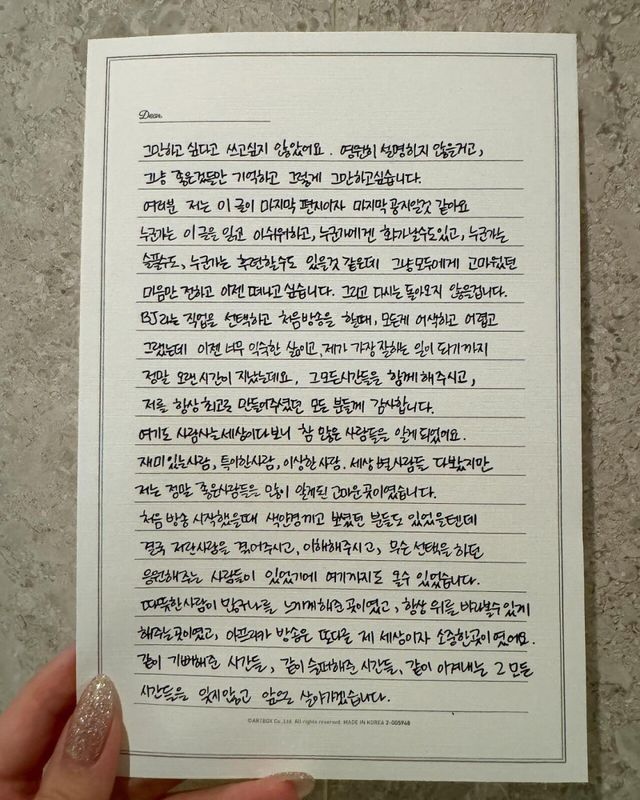 Dear.
그만하고 싶다고 쓰고싶지 않았어요. 영원히 설명하지 않을거고,
그냥 좋은것들만 기억하고 그렇게 그만하고싶습니다.
여러분 저는 이 글이 마지막 편지이자 마지막 공지일것 같아요
누군가는 이 글을 읽고 아쉬워하고, 누군가에겐 화가날수도있고, 누군가는
슬플수도, 누군가는 후련할수도 있을것 같은데 그냥 모두에게 고마웠던
마음만 전하고 이젠 떠나고 싶습니다. 그리고 다시는 돌아오지 않을겁니다.
BJ라는 직업을 선택하고 처음방송을 할때, 모든게 어색하고 어렵고
그랬는데 이젠 너무 익숙한 삶이고, 제가 가장 잘하는 일이 되기까지
정말 오랜시간이 지났는데요, 그모든시간들을 함께해주시고,
저를 항상 최고로 만들어주셨던 모든 분들께 감사합니다.
여기도 사람사는세상이다보니 참 많은 사람들을 알게되었어요.
재미있는사람, 특이한사람, 이상한사람. 세상 별사람들 다봤지만
저는 정말 좋은사람들을 많이 알게된 고마운곳이였습니다.
처음 방송 시작했을때 색안경끼고 보셨던 분들도 있었을텐데
결국 저란사람을 겪어주시고, 이해해주시고, 무슨 선택을 하던
응원해주는 사람들이 있었기에 여기까지도 올수 있었습니다.
따뜻한사람이 많구나를 느끼게해준 곳이였고, 항상 위를 바라볼수있게
해주는곳이였고, 아프리카 방송은 또다른 제 세상이자 소중한곳이였어요.
같이 기뻐해준 시간들, 같이 슬퍼해준 시간들, 같이 이겨내는 그 모든
시간들을 잊지않고 앞으로 살아가겠습니다.
©ARTBOX Co., Ltd. All rights reserved. MADE IN KOREA 2-005948